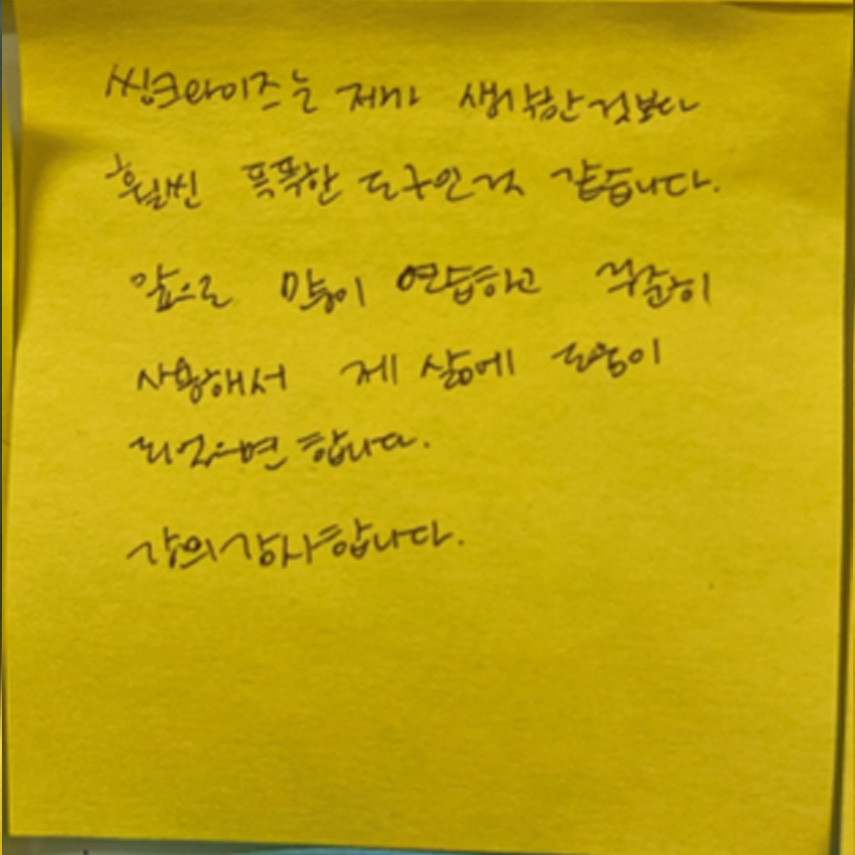 씽크와이즈는 제가 생각한 것보다
훨씬 톡톡한 도구인것 같습니다.
앞으로 많이 연습하고 꾸준히
사용해서 제 삶에 도움이
되었으면 합니다.
강의감사합니다.